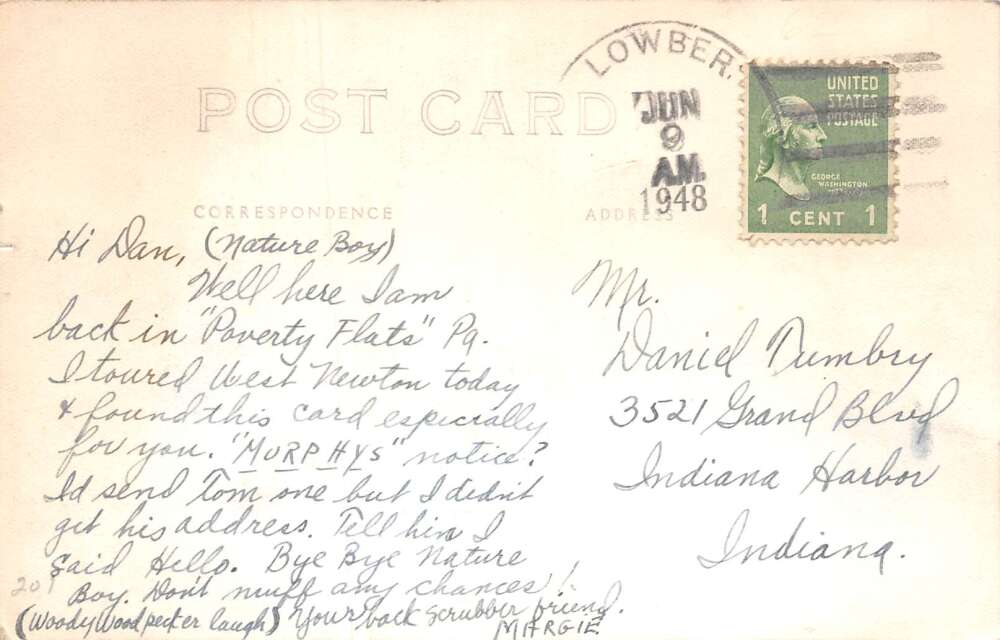 POST CARD
CORRESPONDENCE
ADDRESS
LOWBER.
JUN
9
AM
1948
UNITED
STATES
POSTAGE
GEORGE
WASHINGTON
1 CENT 1
Hi Dan, (Nature Boy)
Well here I am
back in "Poverty Flats" Pa.
I toured West Newton today
& found this card especially
for you. "MURPHYS" notice?
I'd send Tom one but I didn't
get his address. Tell him I
said Hello. Bye Bye Nature
Boy. Don't muff any chances!
(Woody Woodpecker laugh) Your back scrubber friend.
MARGIE
201
Mr.
Daniel Dumbry
3521 Grand Blvd
Indiana Harbor
Indiana.